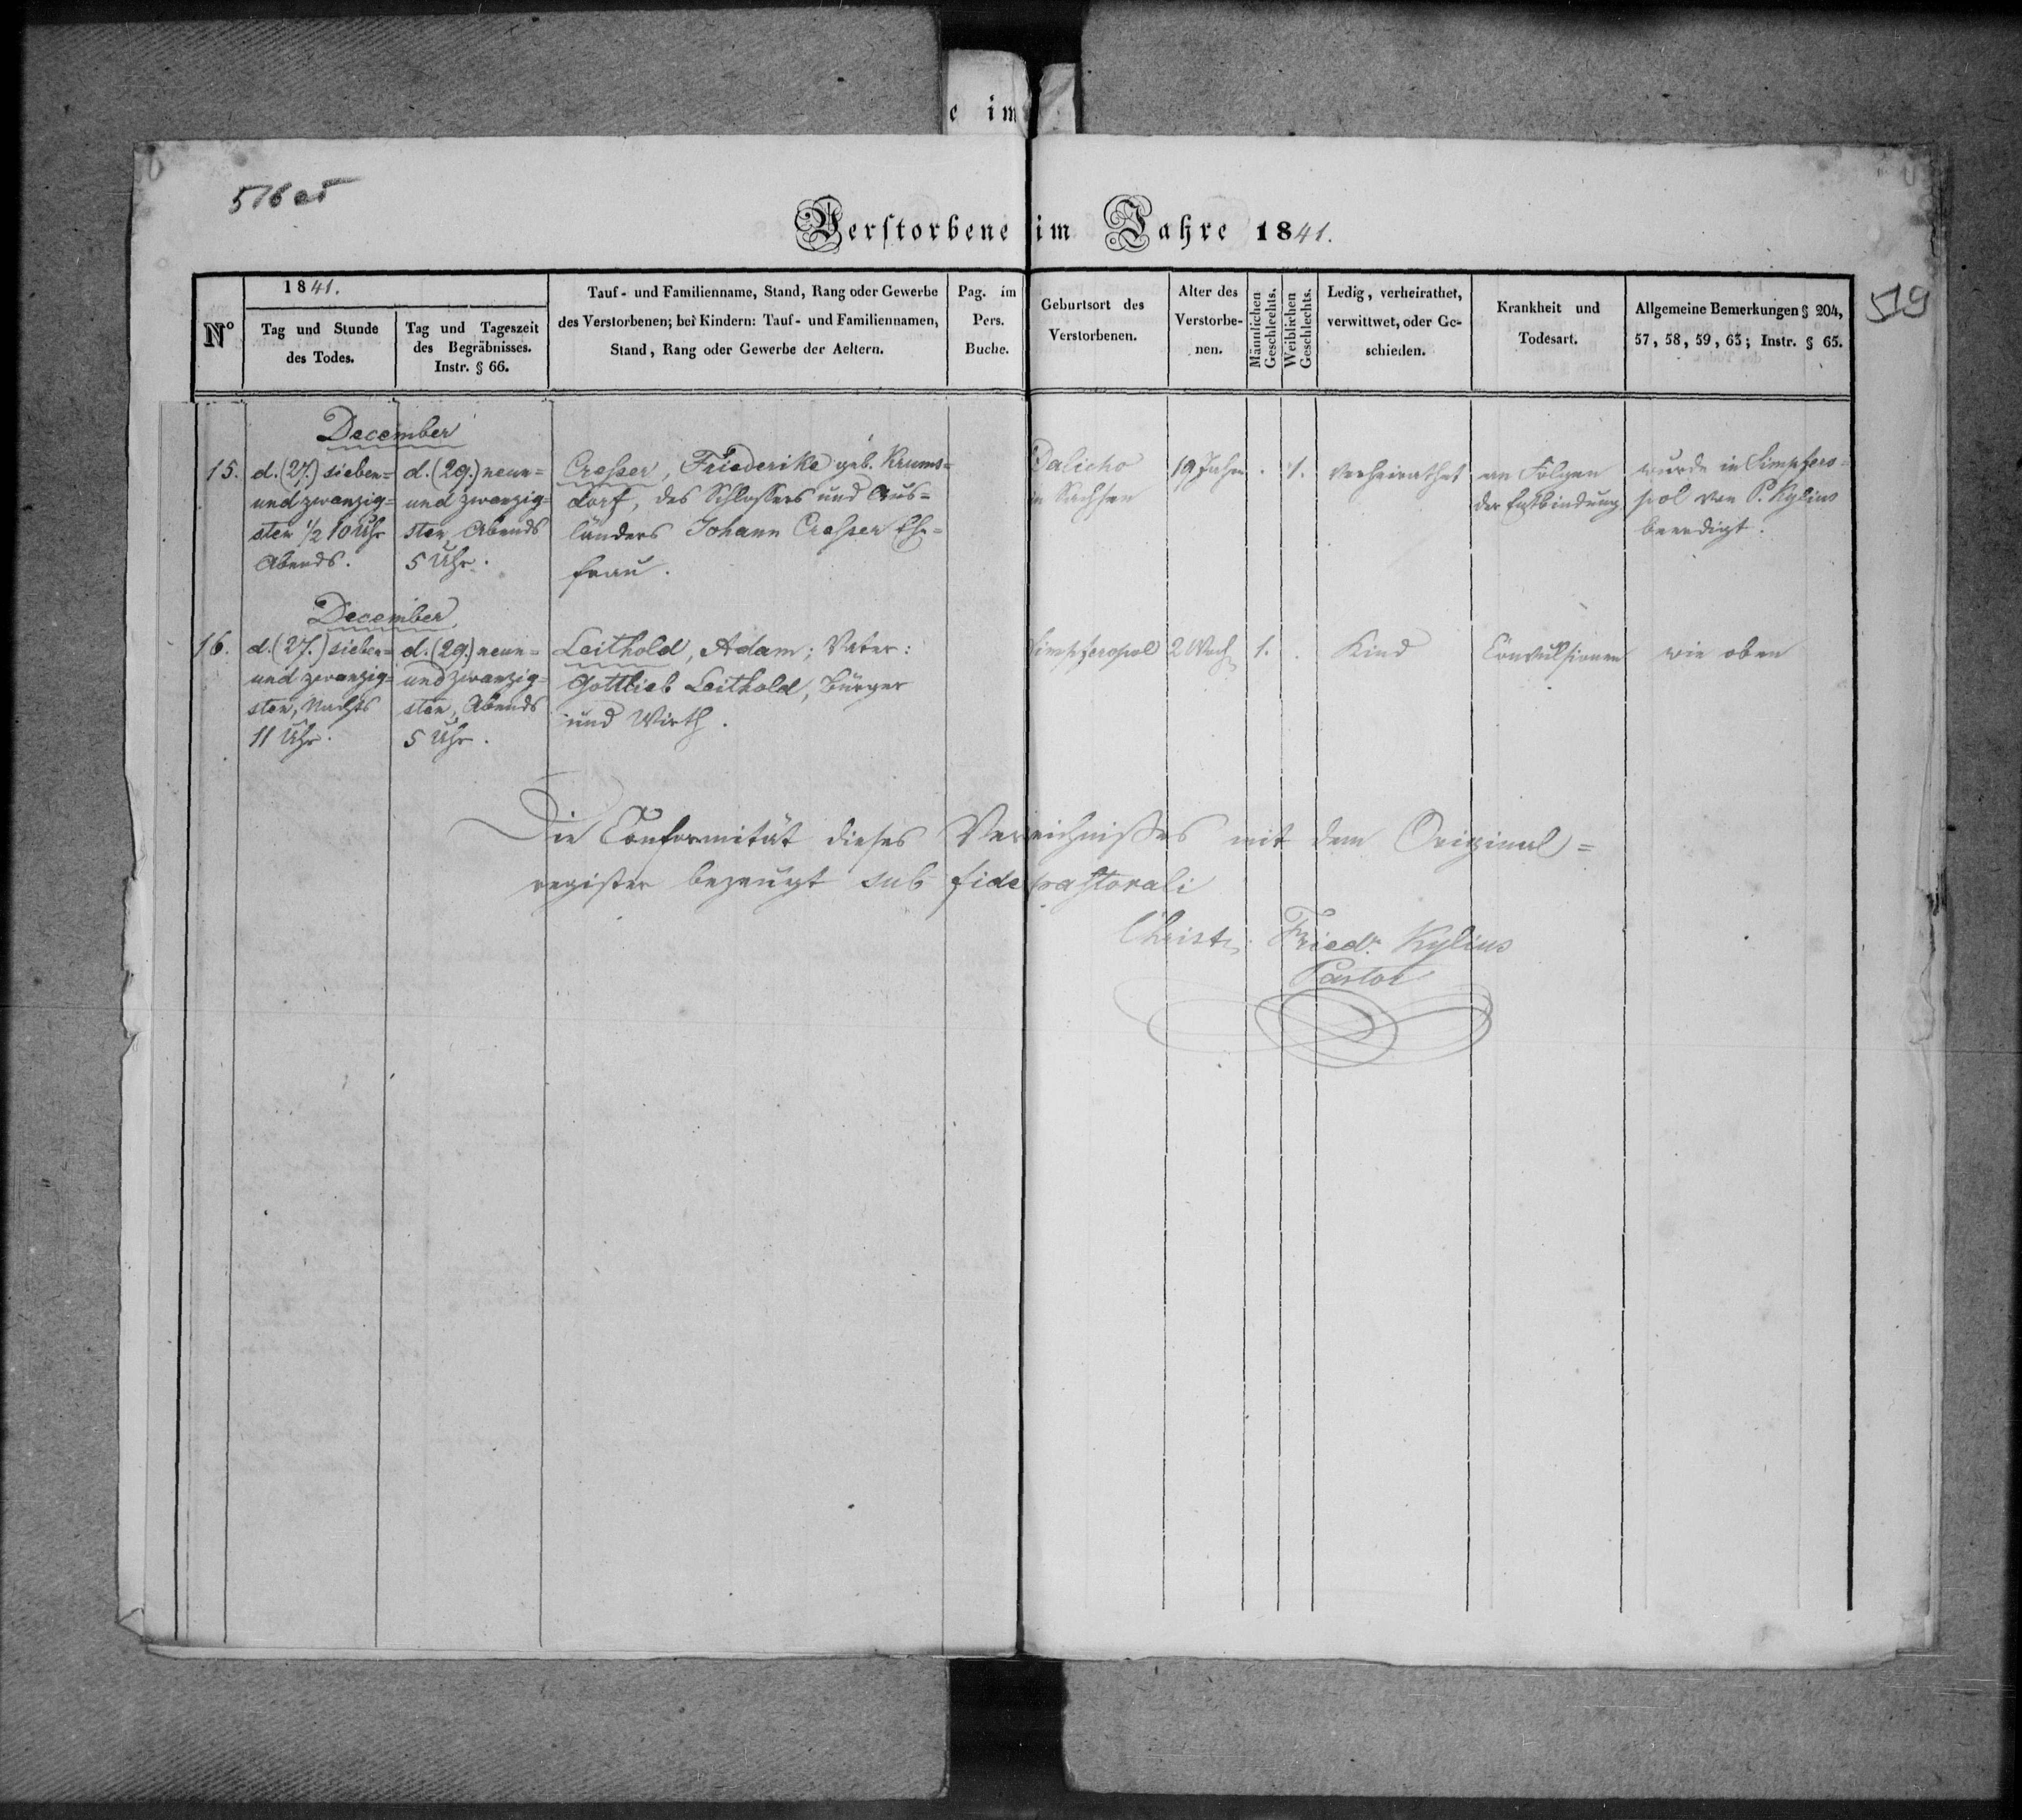 e im
516 об
Verstorbene im Jahre 1841.
519
N°
1841.
Tag und Stunde
des Todes.
Tag und Tageszeit
des Begräbnisses.
Instr. § 66.
Tauf- und Familienname, Stand, Rang oder Gewerbe
des Verstorbenen; bei Kindern: Tauf- und Familiennamen,
Stand, Rang oder Gewerbe der Aeltern.
Pag. im
Pers.
Buche.
Geburtsort des
Verstorbenen.
Alter des
Verstorbe-
nen.
Männlichen
Geschlechts.
Weiblichen
Geschlechts.
Ledig, verheirathet,
verwittwet, oder Ge-
schieden.
Krankheit und
Todesart.
Allgemeine Bemerkungen § 204,
57, 58, 59, 63; Instr. § 65.
December
15.
d. (27.) sieben=
und zwanzig=
sten 1/2 10 Uhr
Abends.
d. (29.) neun=
und zwanzig=
sten, Abends
5 Uhr.
Friederike geb. Krums=
dorf, des Schlossers und Aus=
länders Johann Ehe=
frau.
Dalicho
in Sachsen
19 Jahre
.
1.
verheirathet
an Folgen
der Entbindung
wurde in Simpfero=
pol von P. Kylius
beerdigt.
December
16.
d. (27.) sieben=
und zwanzig=
sten, Nachts
11 Uhr.
d. (29.) neun=
und zwanzig=
sten, Abends
5 Uhr.
Leithold, Adam; Vater:
Gottlieb Leithold, Bürger
und Wirth.
Simpferopol
2 Woch
1.
.
Kind
Convulsionen
wie oben
Die Conformität dieses Verzeichnißes mit dem Original=
register bezeugt sub fide pastorali
Christ. Friedr. Kylius
Pastor